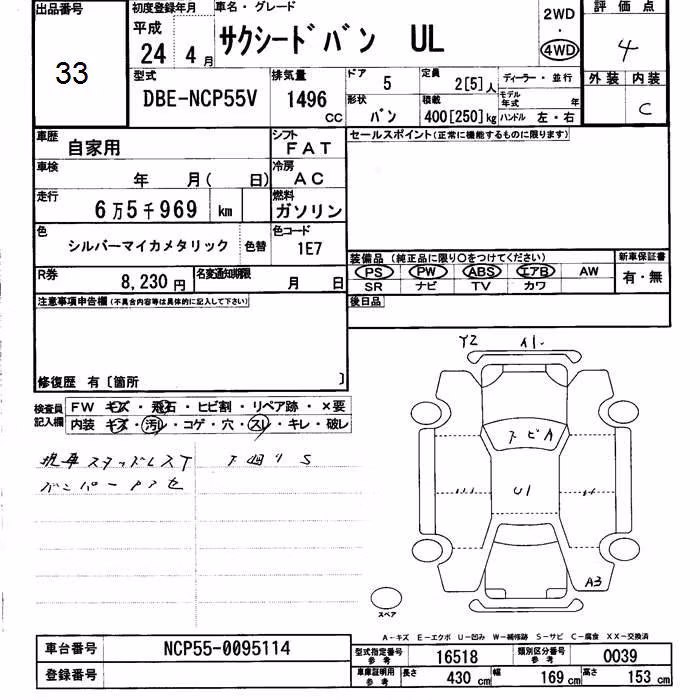 出品番号
33
初度登録年月
平成
24 4月
車名・グレード
サクシードバン UL
2WD
・
4WD
評価点
4
外装 内装
C
型式
DBE-NCP55V
排気量
1496
CC
ドア
5
定員
2[5]人
ディーラー・並行
形状
バン
積載
400[250]kg
モデル年式 年
ハンドル 左・右
車歴
自家用
シフト
FAT
セールスポイント(正常に機能するものに限ります)
車検
年 月( 日)
冷房
AC
走行
6万5千969 km
燃料
ガソリン
色
シルバーマイカメタリック
色替
色コード
1E7
装備品(純正品に限り○をつけてください)
新車保証書
PS PW ABS エアB AW
有・無
SR ナビ TV カワ
R券
8,230円
名変通知期限
月 日
後日品
注意事項申告欄(不具合内容等は具体的に記入して下さい)
修復歴 有〔箇所 〕
検査員記入欄
FW キズ・飛石・ヒビ割・リペア跡・×要
内装 キズ・汚レ・コゲ・穴・スレ・キレ・破レ
Y2
U1
A3
スペア
A-キズ E-エクボ U-凹み W-補修跡 S-サビ C-腐食 XX-交換済
車台番号
NCP55-0095114
登録番号
型式指定番号
参考
16518
類別区分番号
参考
0039
車庫証明用
参考
長さ
430 cm
幅
169 cm
高さ
153 cm